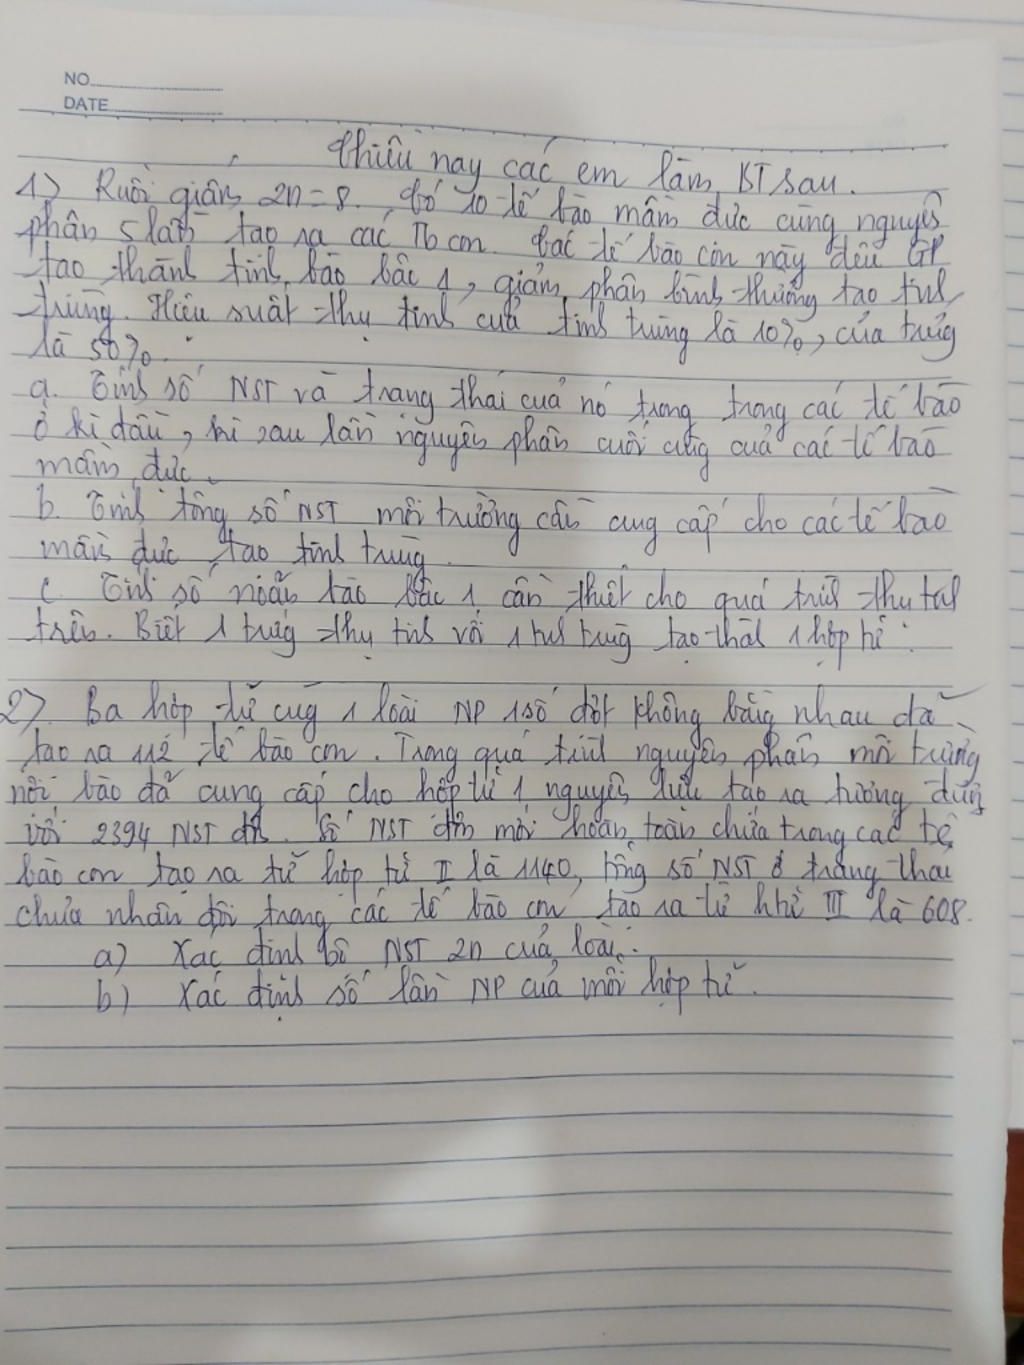 NO
DATE
Chiều nay các em làm BT sau.
1) Ruồi giấm 2n = 8. Có 10 tế bào mầm đực cùng nguyên
phân 5 lần tạo ra các Tb con. Các tế bào con này đều GP
tạo thành tinh bào bậc 1, giảm phân bình thường tạo tinh
trùng. Hiệu suất thụ tinh của tinh trùng là 10%, của trứng
là 50%.
a. Tính số NST và trạng thái của nó trong trong các tế bào
ở kì đầu, kì sau lần nguyên phân cuối cùng của các tế bào
mầm đực.
b. Tính tổng số NST môi trường cần cung cấp cho các tế bào
mầm đực tạo tinh trùng.
c. Tính số noãn bào bậc 1 cần thiết cho quá trình thụ tinh
trên. Biết 1 trứng thụ tinh với 1 tinh trùng tạo thành 1 hợp tử.
2) Ba hợp tử cùng 1 loài NP 1 số đợt không bằng nhau đã
tạo ra 112 tế bào con. Trong quá trình nguyên phân môi trường
nội bào đã cung cấp cho hợp tử 1 nguyên liệu tạo ra tương đương
với 2394 NST đơn. Số NST đơn mới hoàn toàn chứa trong các tế
bào con tạo ra từ hợp tử II là 1140, tổng số NST ở trạng thái
chưa nhân đôi trong các tế bào con tạo ra từ III là 608.
a) Xác định bộ NST 2n của loài.
b) Xác định số lần NP của mỗi hợp tử.